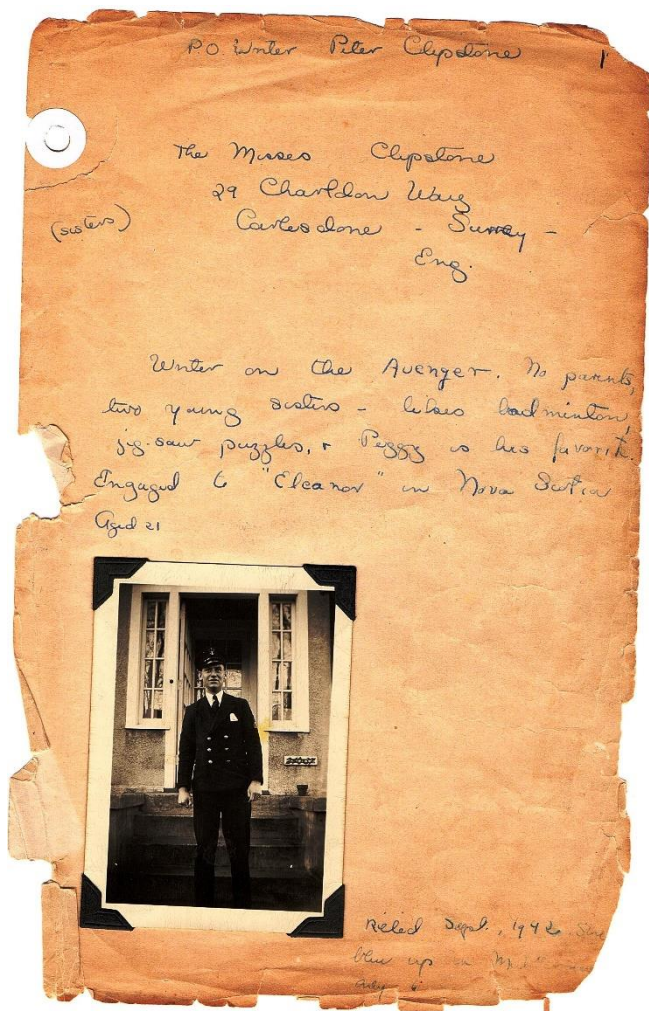 P.O. Writer Peter Clipstone 1
The Misses Clipstone
29 Charldon Way
(sisters)
Carlesdone - Surrey -
Eng.
Writer on the Avenger. No parents,
two young sisters - likes badminton,
jig-saw puzzles, + Peggy is his favorite.
Engaged to "Eleanor" in Nova Scotia
Aged 21
Killed Sept., 1942
blew up in
only 6